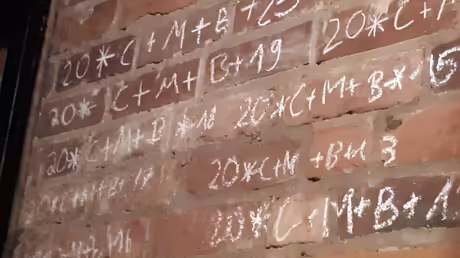 20*C+M+B+23
20*C+M+B+19
20*C+M+B*18
20*C+M+B+17
20*C+M+
20*C+M+B*15
20*C+M+B+13
20*C+M+B+1